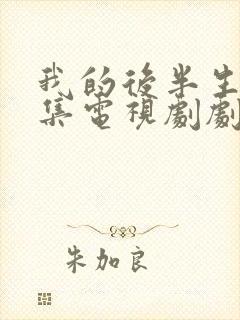 我的後半生
集電視劇劇
朱加良